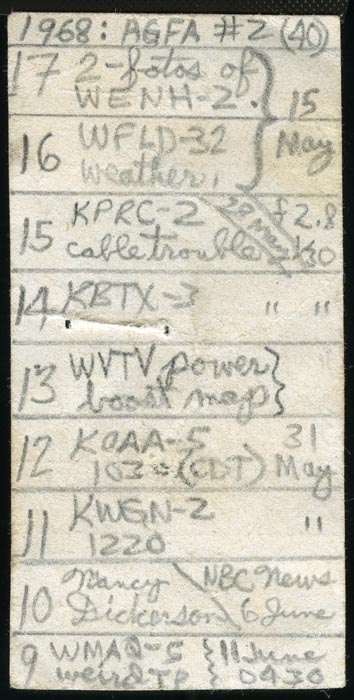 1968: AGFA #2 (40)
17 2-fotos of
WENH-2. } 15
16 WFLD-32 May
weather,
15 KPRC-2 f2.8
cable trouble 1/30
14 KBTX-3 " "
13 WVTV power }
boost map
12 KOAA-5 31
1030 (CDT) May
11 KWGN-2 "
1220
10 Nancy \ NBC News
Dickerson \ 6 June
9 WMAQ-5 { 11 June
weird TP { 0430